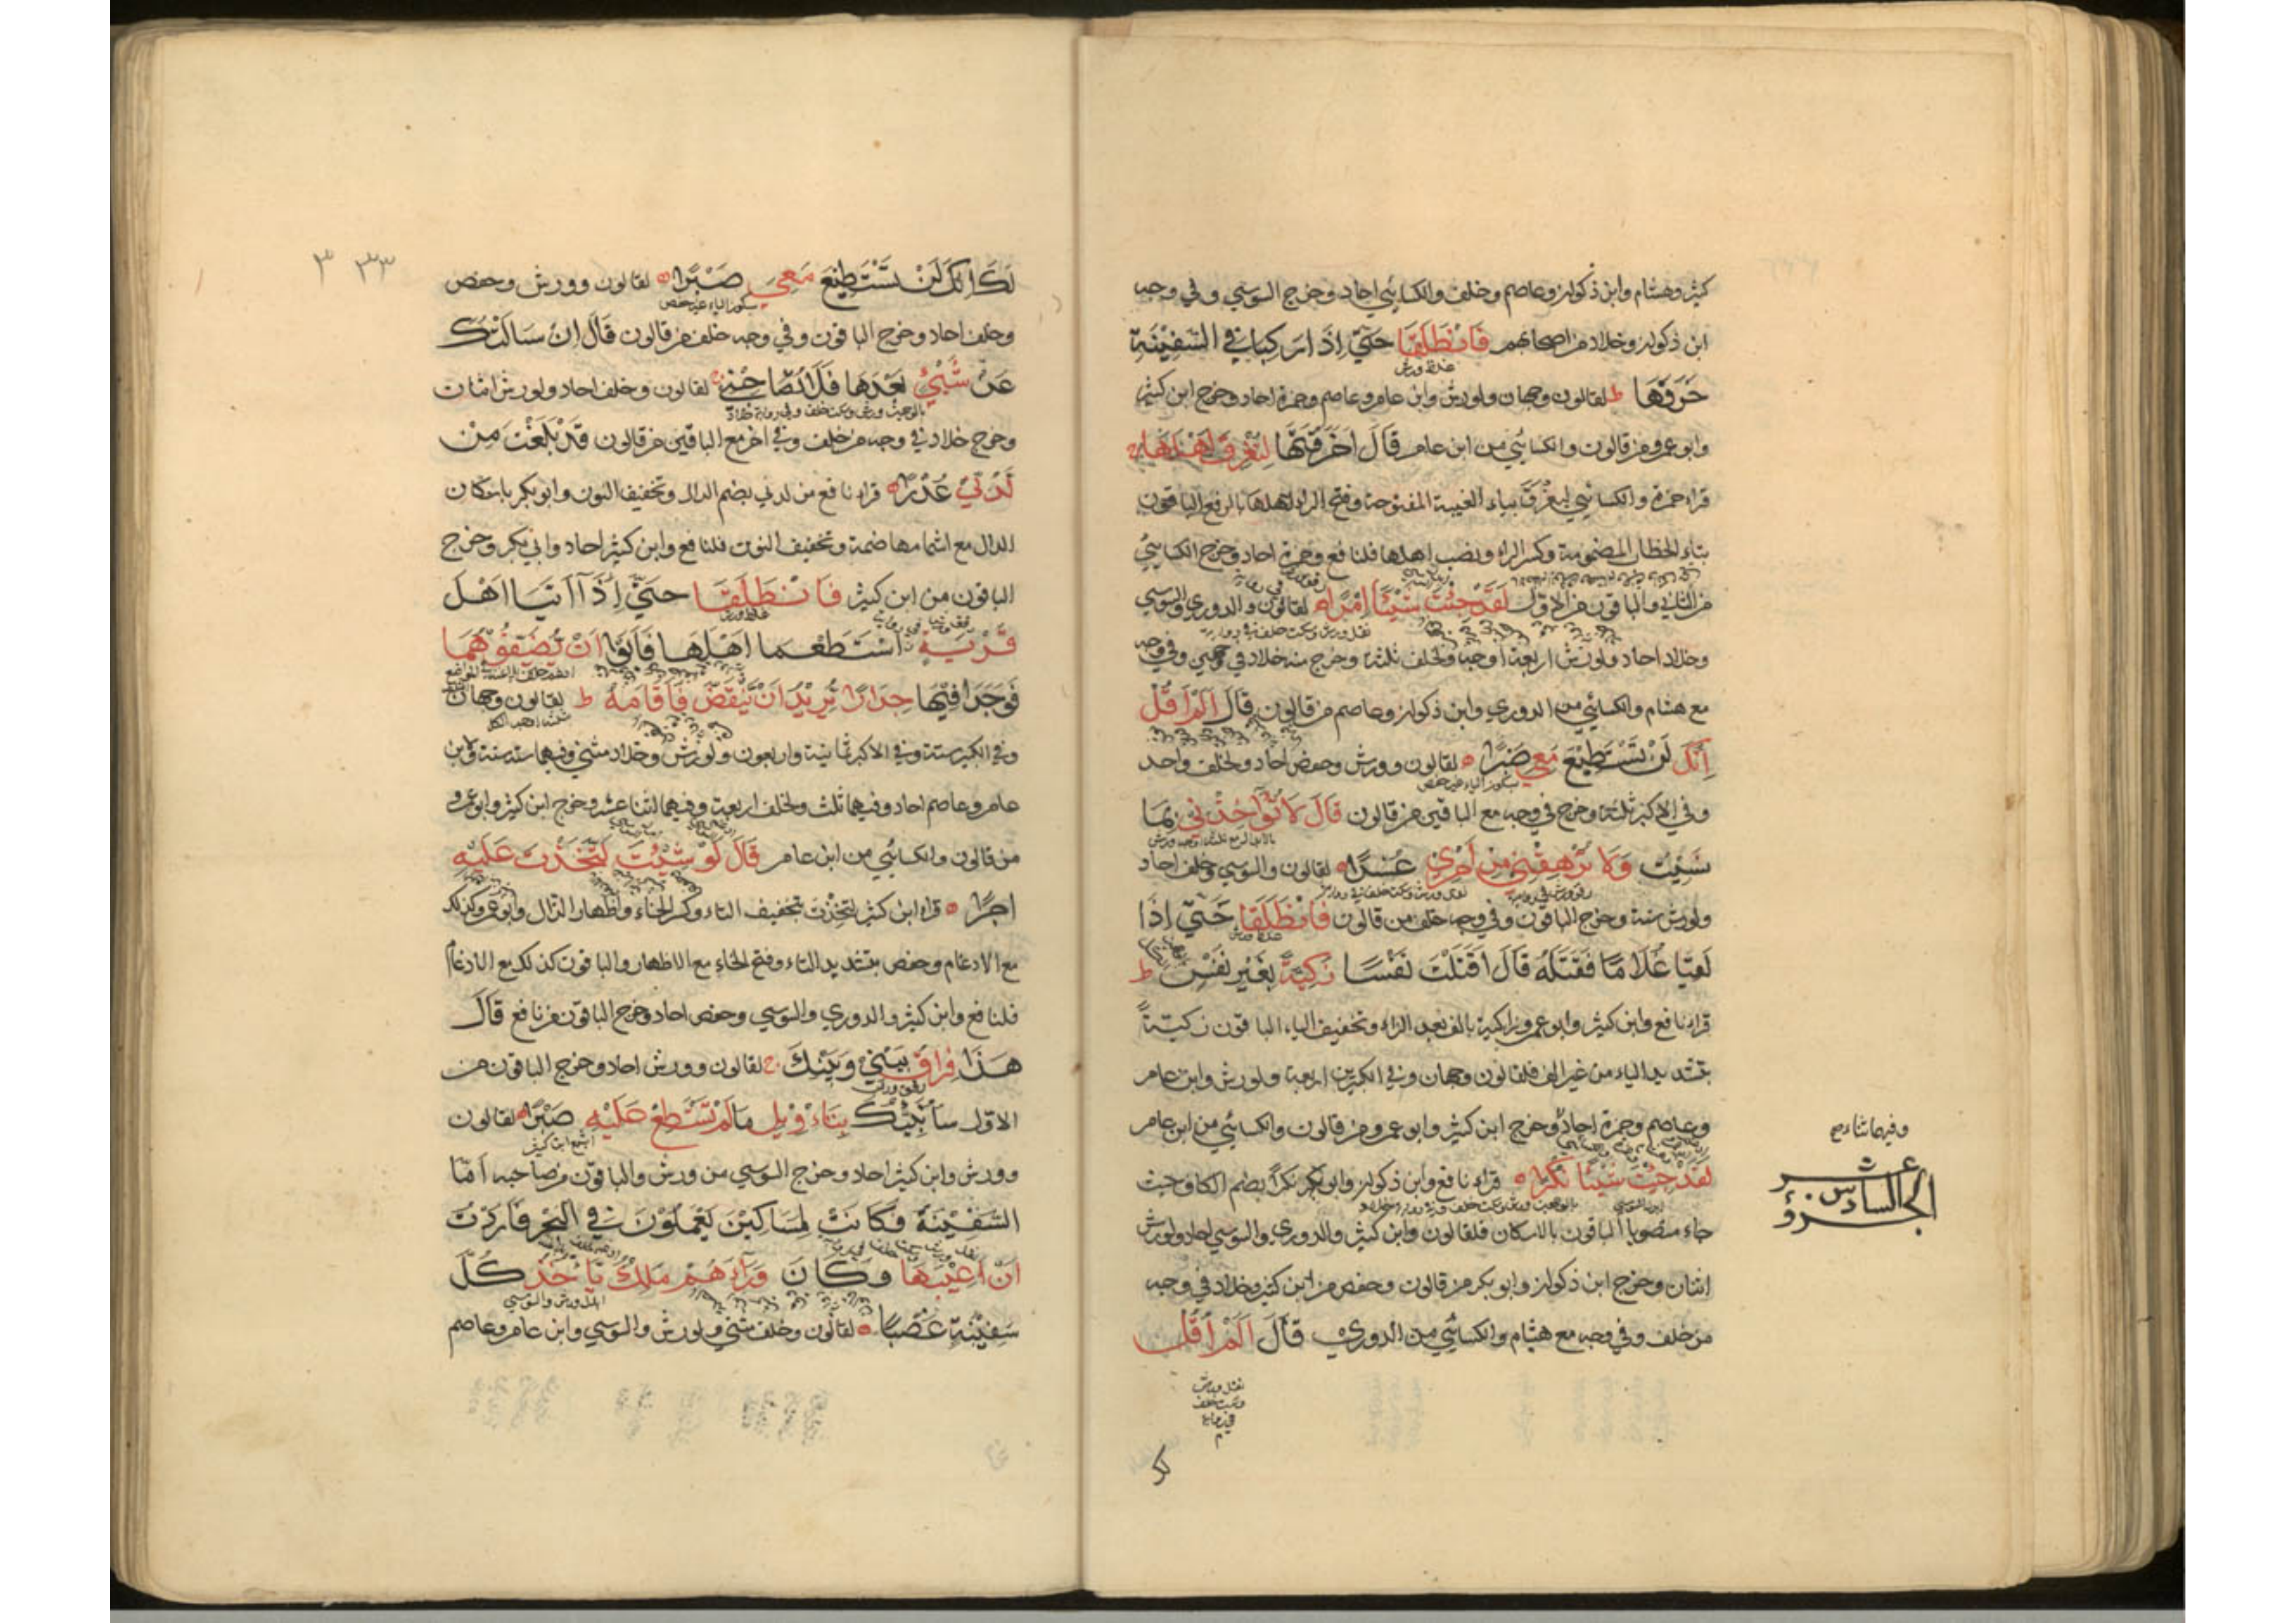 كثير وهشام وابن ذكوان وعاصم وخلف والكسائي احاد وخرج السوسي وفي وجه
ابن ذكوان وخلاد من اصحابهم فَانْطَلَقَا حَتّىٰ اِذَا رَكِبَا فِي السَّفِيْنَةِ
غلظ ورش
خَرَقَهَا ط لقالون وجهان ولورش وابن عامر وعاصم وحمزة احاد وخرج ابن كثير
وابو عمرو من قالون والكسائي من ابن عامر قَالَ اَخَرَقْتَهَا لِتُغْرِقَ اَهْلَهَا ج
قراء حمزة والكسائي ليغرق بياء الغيبة المفتوحة وفتح الراء اهلها بالرفع الباقون
بتاء الخطاب المضمومة وكسر الراء ونصب اهلها فلنافع وحمزة احاد وخرج الكسائي
من الثاني والباقون من الاول لَقَدْ جِئْتَ شَيْئًا اِمْرًا ه لقالون والدوري والسوسي
نقل ورش وسكت خلف في رواية
وخلاد احاد ولورش اربعة اوجه ولخلف ثلثة وخرج منه خلاد في وجهي وفي وجه
مع هشام والكسائي من الدوري وابن ذكوان وعاصم من قالون قَالَ اَلَمْ اَقُلْ
اِنَّكَ لَنْ تَسْتَطِيْعَ مَعِيَ صَبْرًا ه لقالون وورش وحفص احاد ولخلف واحد
بسكون الياء غير حفص
وفي الاكبر ثلثة وخرج في وجه مع الباقين من قالون قَالَ لَا تُؤَاخِذْنِي بِمَا
نَسِيْتُ وَلَا تُرْهِقْنِي مِنْ اَمْرِي عُسْرًا ه لقالون والسوسي وخلف احاد
ولورش ستة وخرج الباقون وفي وجه خلف من قالون فَانْطَلَقَا حَتّىٰ اِذَا
غلظ ورش
لَقِيَا غُلَامًا فَقَتَلَهُ قَالَ اَقَتَلْتَ نَفْسًا زَكِيَّةً بِغَيْرِ نَفْسٍ ط
قراء نافع وابن كثير وابو عمرو زاكية بالف بعد الزاء وتخفيف الياء الباقون زكيّةً
بتشديد الياء من غير الف فلقالون وجهان وفي الكبيرين اربعة ولورش وابن عامر
وعاصم وحمزة احاد وخرج ابن كثير وابو عمرو من قالون والكسائي من ابن عامر
لَقَدْ جِئْتَ شَيْئًا نُكْرًا ه قراء نافع وابن ذكوان وابو بكر نكرا بضم الكاف حيث
جاء منصوبا الباقون بالاسكان فلقالون وابن كثير والدوري والسوسي احاد ولورش
اثنان وخرج ابن ذكوان وابو بكر من قالون وحفص من ابن كثير وخلاد في وجه
من خلف وفي وجه مع هشام والكسائي من الدوري قَالَ اَلَمْ اَقُلْ
نقل ورش
وسكت خلف
في رواية
الجزؤ السادس عشر
لَكَ اِنَّكَ لَنْ تَسْتَطِيْعَ مَعِيَ صَبْرًا ه لقالون وورش وحفص
بسكون الياء غير حفص
وخلف احاد وخرج الباقون وفي وجه خلف من قالون قَالَ اِنْ سَاَلْتُكَ
عَنْ شَيْئٍ بَعْدَهَا فَلَا تُصَاحِبْنِي ج لقالون وخلف احاد ولورش اثنان
وخرج خلاد في وجه من خلف وفي اخر مع الباقين من قالون قَدْ بَلَغْتَ مِنْ
لَدُنِّي عُذْرًا ه قراء نافع من لدني بضم الدال وتخفيف النون وابو بكر باسكان
الدال مع اشمامها ضمة وتخفيف النون فلنافع وابن كثير احاد وابي بكر وخرج
الباقون من ابن كثير فَانْطَلَقَا حَتّىٰ اِذَا اَتَيَا اَهْلَ
غلظ ورش
قَرْيَةٍ اسْتَطْعَمَا اَهْلَهَا فَاَبَوْا اَنْ يُضَيِّفُوْهُمَا
فَوَجَدَا فِيْهَا جِدَارًا يُرِيْدُ اَنْ يَنْقَضَّ فَاَقَامَهُ ط لقالون وجهان
وفي الكبير ستة وفي الاكبر ثمانية واربعون ولورش وخلاد مثنى وفيهما ستة ستة ولابن
عامر وعاصم احاد وفيهما ثلث ولخلف اربعة وفيهما اثنا عشر وخرج ابن كثير وابو عمرو
من قالون والكسائي من ابن عامر قَالَ لَوْ شِئْتَ لَتَّخَذْتَ عَلَيْهِ
اَجْرًا ه قراء ابن كثير لتخذت بتخفيف التاء وكسر الخاء واظهار الذال وابو عمرو كذلك
مع الادغام وحفص بتشديد التاء وفتح الخاء مع الاظهار والباقون كذلك مع الادغام
فلنافع وابن كثير والدوري والسوسي وحفص احاد وخرج الباقون من نافع قَالَ
هَذَا فِرَاقُ بَيْنِي وَبَيْنِكَ ج لقالون وورش احاد وخرج الباقون من
الاول سَاُنَبِّئُكَ بِتَاْوِيْلِ مَا لَمْ تَسْتَطِعْ عَلَيْهِ صَبْرًا ه لقالون
اشبع ابن كثير
وورش وابن كثير احاد وخرج السوسي من ورش والباقون من صاحبه اَمَّا
السَّفِيْنَةُ فَكَانَتْ لِمَسَاكِيْنَ يَعْمَلُوْنَ فِي الْبَحْرِ فَاَرَدْتُ
اَنْ اَعِيْبَهَا وَكَانَ وَرَاءَهُمْ مَلِكٌ يَاْخُذُ كُلَّ
ابدل ورش والسوسي
سَفِيْنَةٍ غَصْبًا ه لقالون وخلف مثنى ولورش والسوسي وابن عامر وعاصم